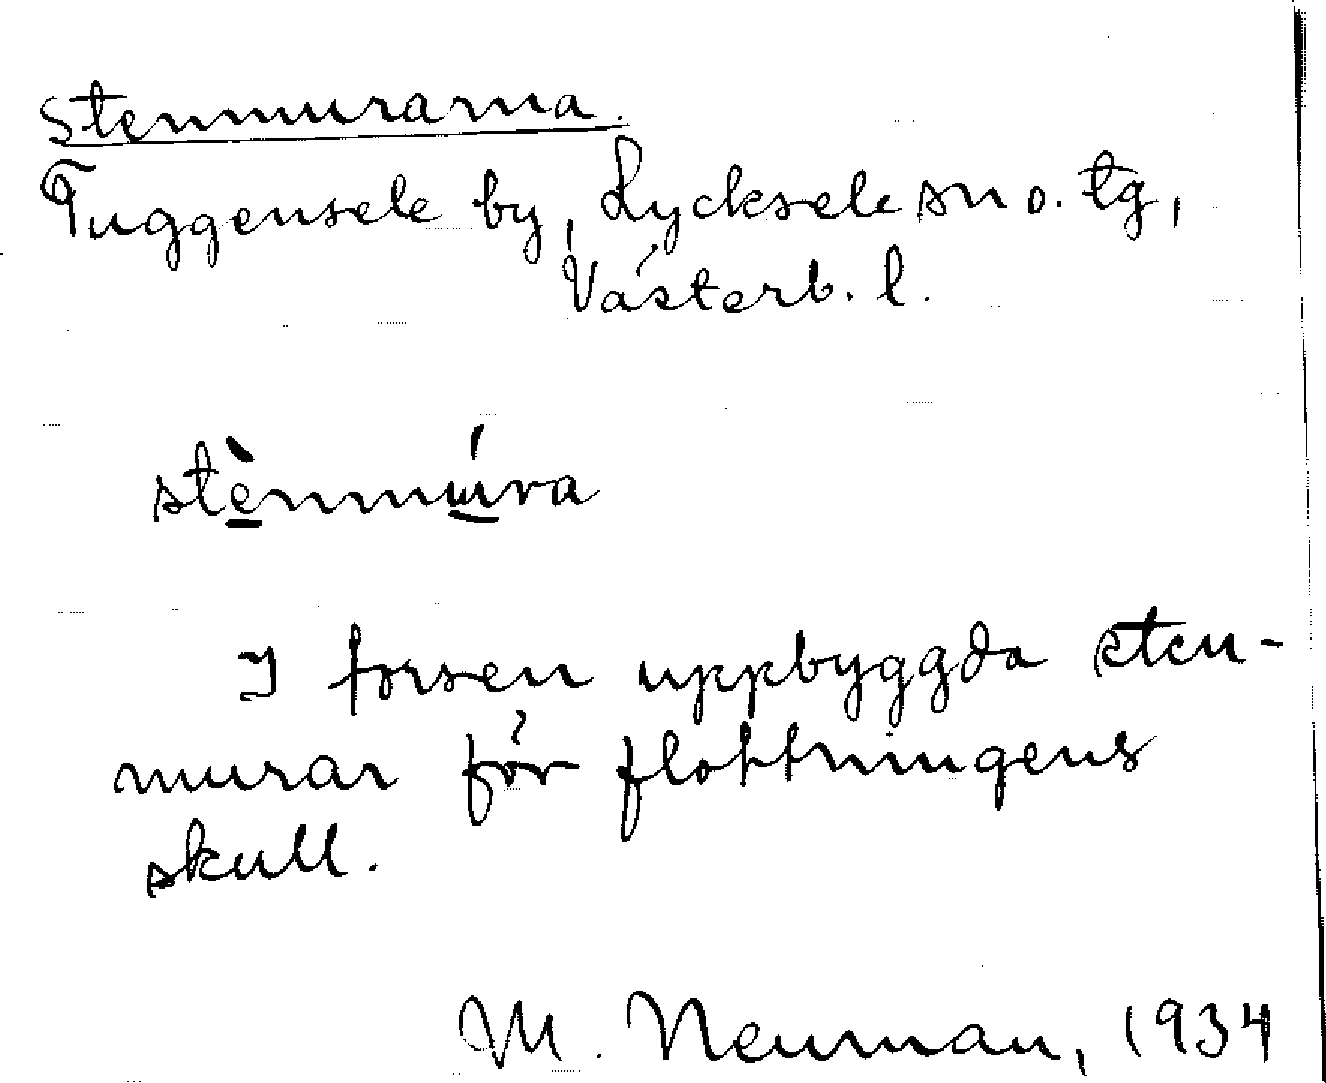 Stenmurarna.
Tuggensele by, Lycksele sn o. tg,
Västerb. l.
stènmúra
I forsen uppbyggda sten-
murar för flottningens
skull.
M. Neuman, 1934